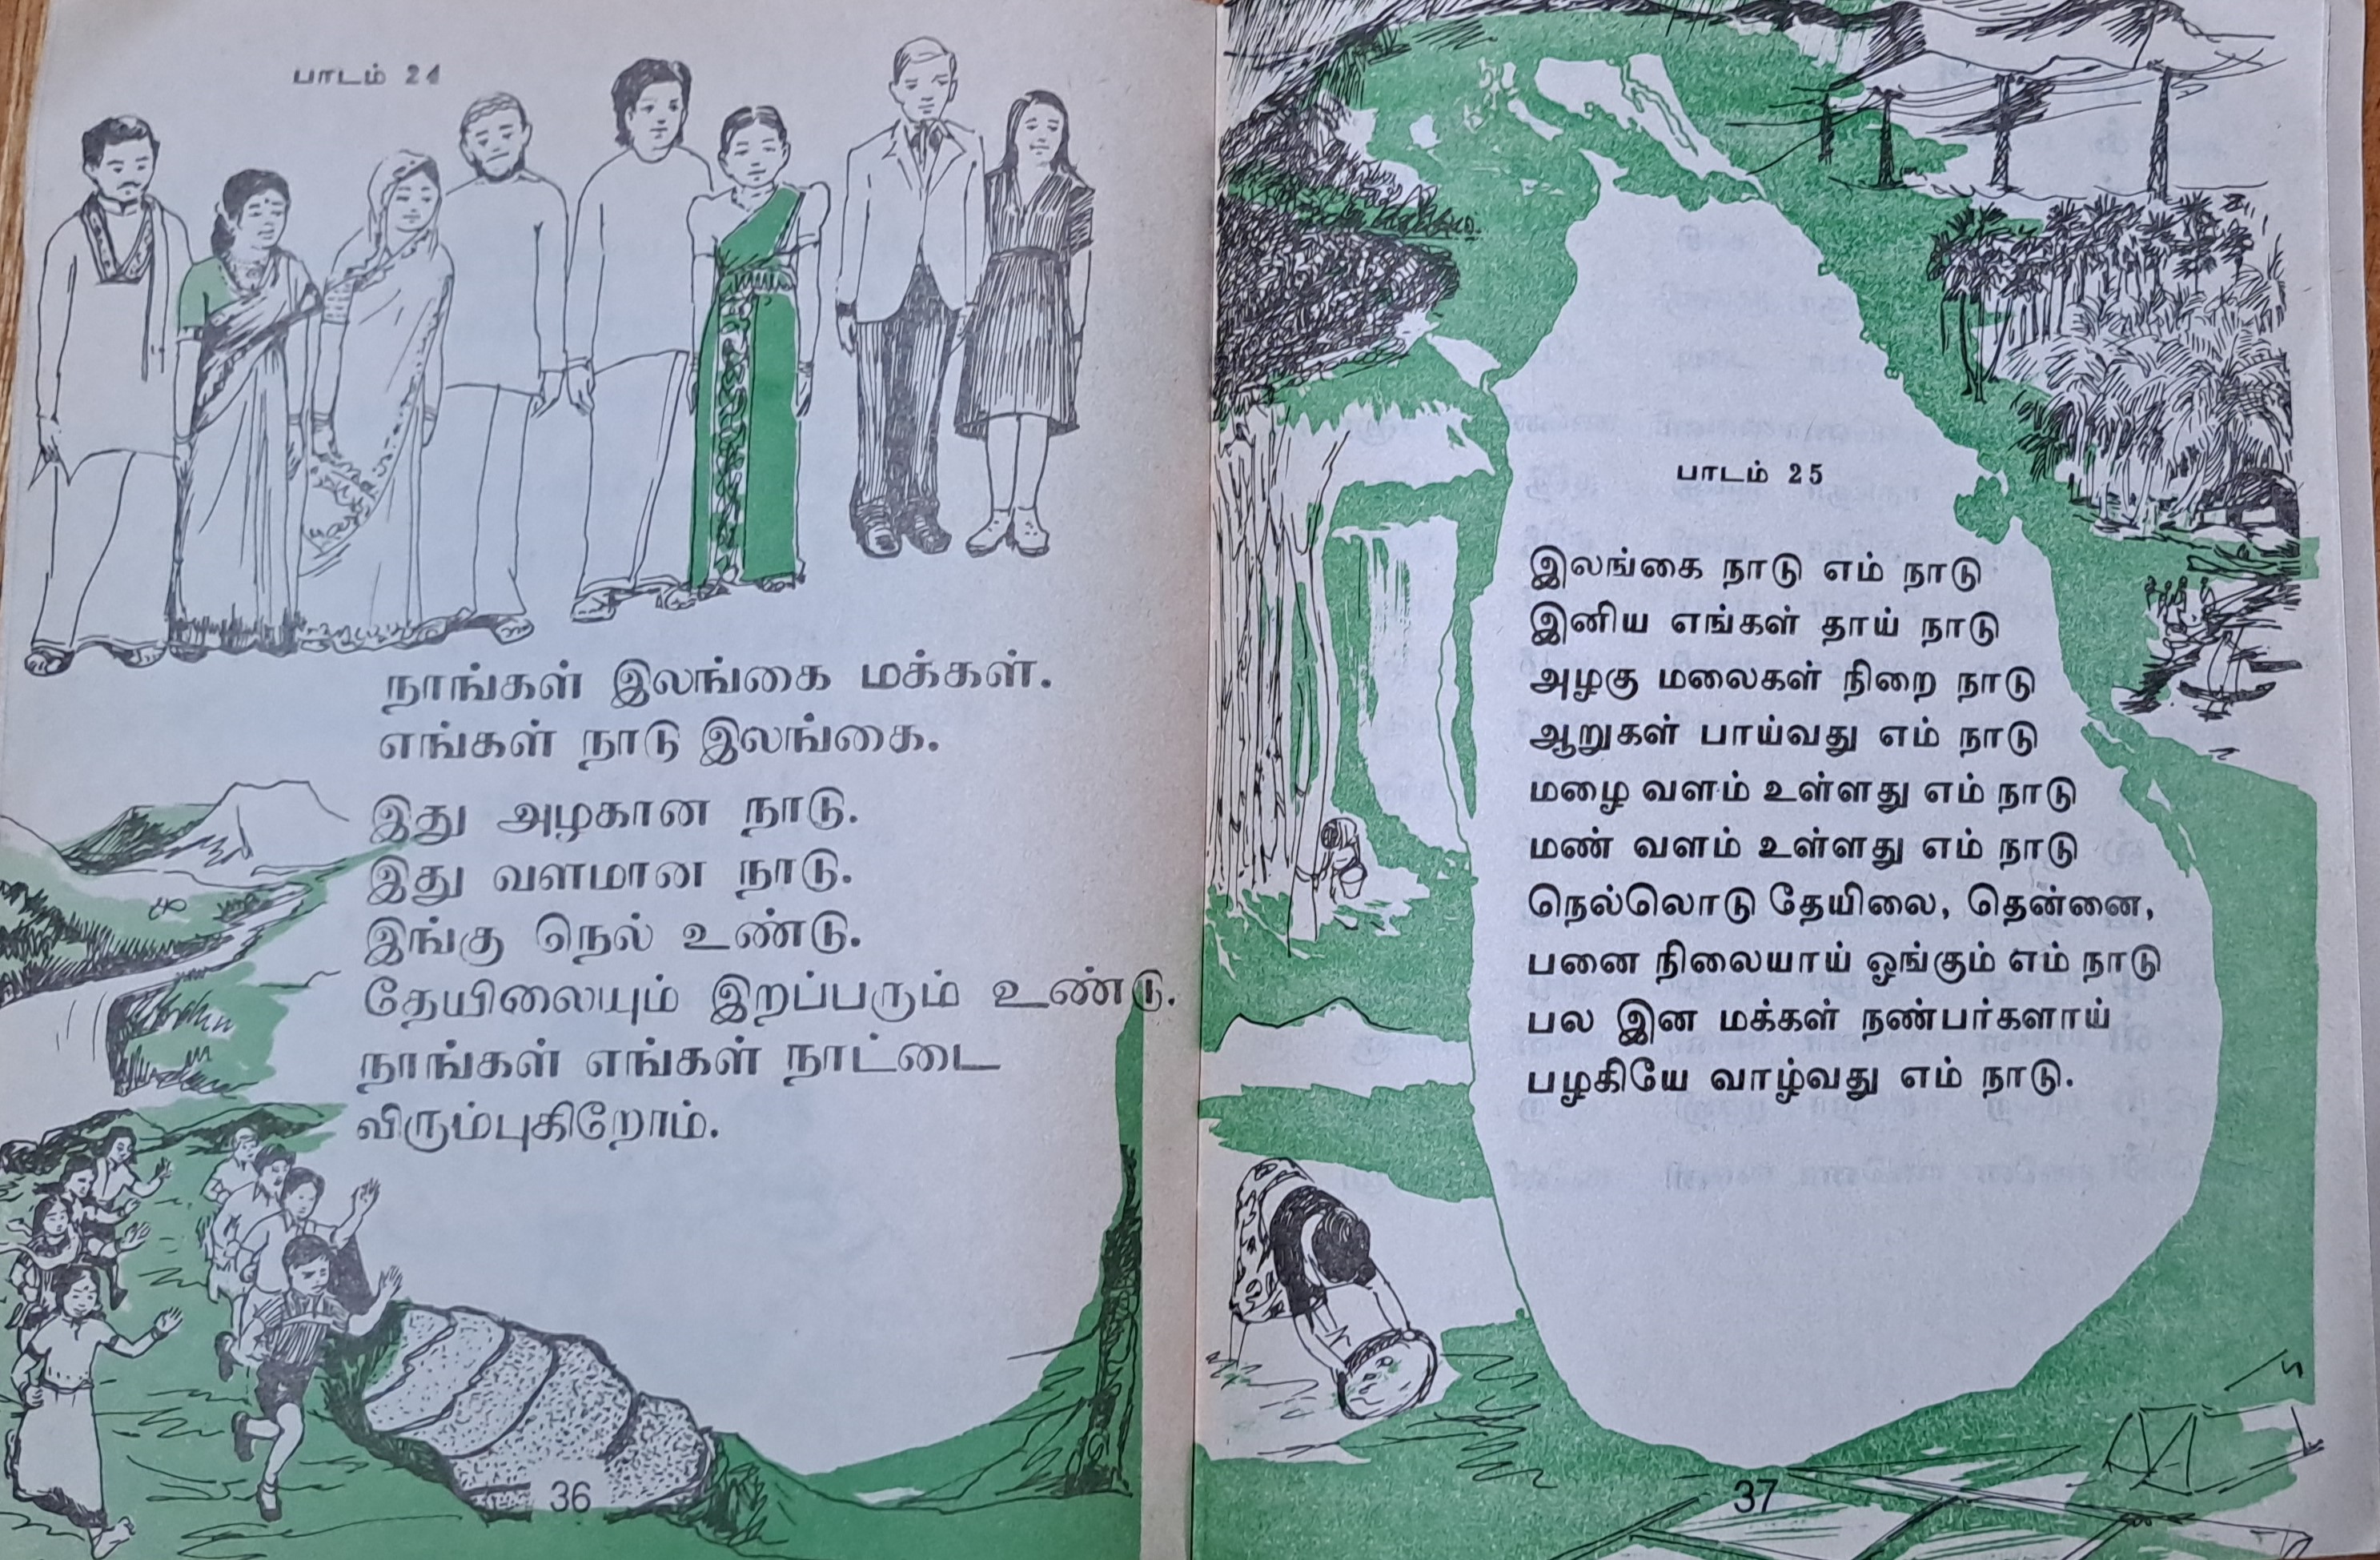 பாடம் 24
நாங்கள் இலங்கை மக்கள்.
எங்கள் நாடு இலங்கை.
இது அழகான நாடு.
இது வளமான நாடு.
இங்கு நெல் உண்டு.
தேயிலையும் இறப்பரும் உண்டு.
நாங்கள் எங்கள் நாட்டை
விரும்புகிறோம்.
36
பாடம் 25
இலங்கை நாடு எம் நாடு
இனிய எங்கள் தாய் நாடு
அழகு மலைகள் நிறை நாடு
ஆறுகள் பாய்வது எம் நாடு
மழை வளம் உள்ளது எம் நாடு
மண் வளம் உள்ளது எம் நாடு
நெல்லொடு தேயிலை, தென்னை,
பனை நிலையாய் ஓங்கும் எம் நாடு
பல இன மக்கள் நண்பர்களாய்
பழகியே வாழ்வது எம் நாடு.
37